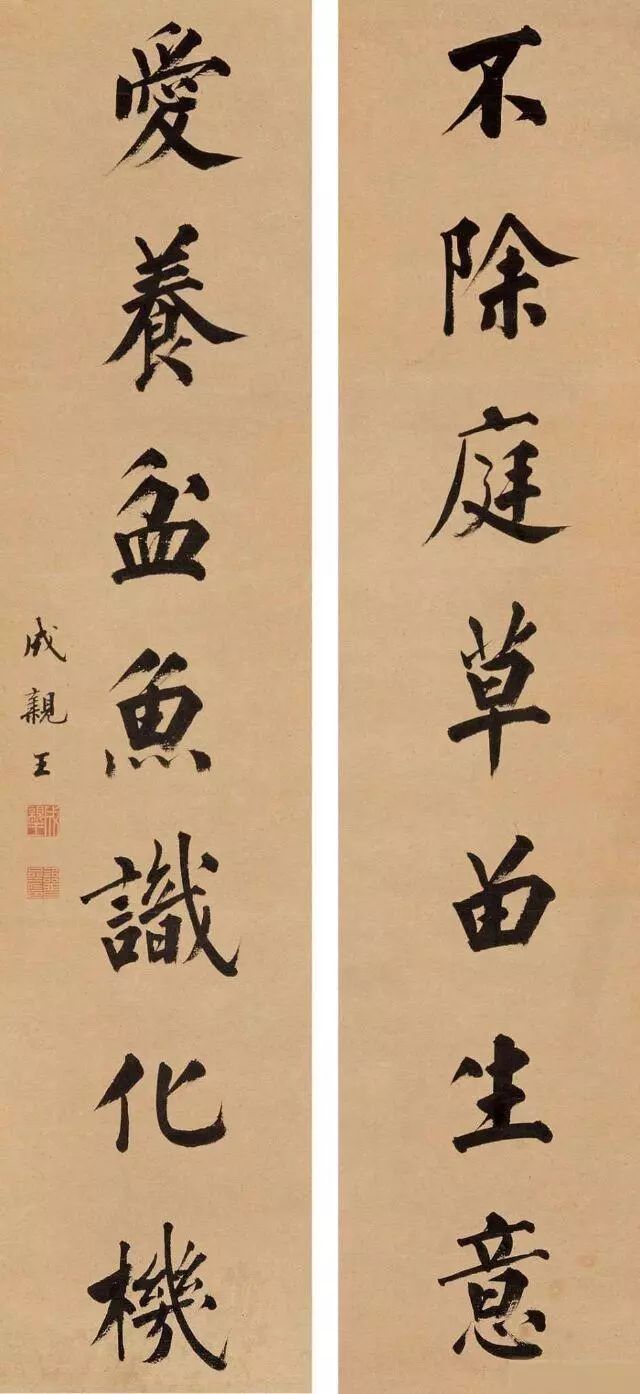 不除庭草由生意
愛養盆魚識化機
成親王